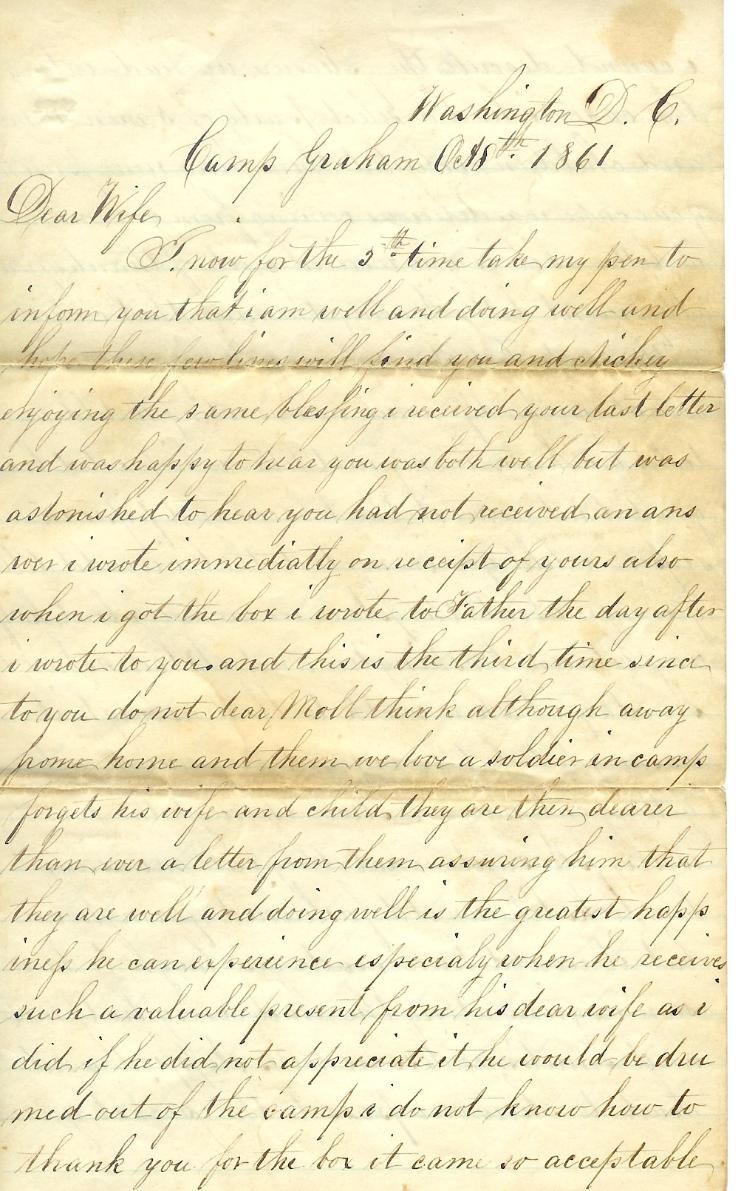 Washington D. C.
Camp Graham Oct 8th 1861
Dear Wife
I now for the 5th time take my pen to
inform you that i am well and doing well and
hope these few lines will find you and Mickey
enjoying the same blessing i received your last letter
and was happy to hear you was both well but was
astonished to hear you had not received an ans
wer i wrote immediatly on receipt of yours also
when i got the box i wrote to Father the day after
i wrote to you. and this is the third time since
to you do not dear Moll think although away
frome home and them we love a soldier in camp
forgets his wife and child they are then dearer
than ever a letter from them assuring him that
they are well and doing well is the greatest happ
iness he can experience especialy when he receives
such a valuable present from his dear wife as i
did if he did not appreciate it he would be dru
med out of the camp i do not know how to
thank you for the box it came so acceptable